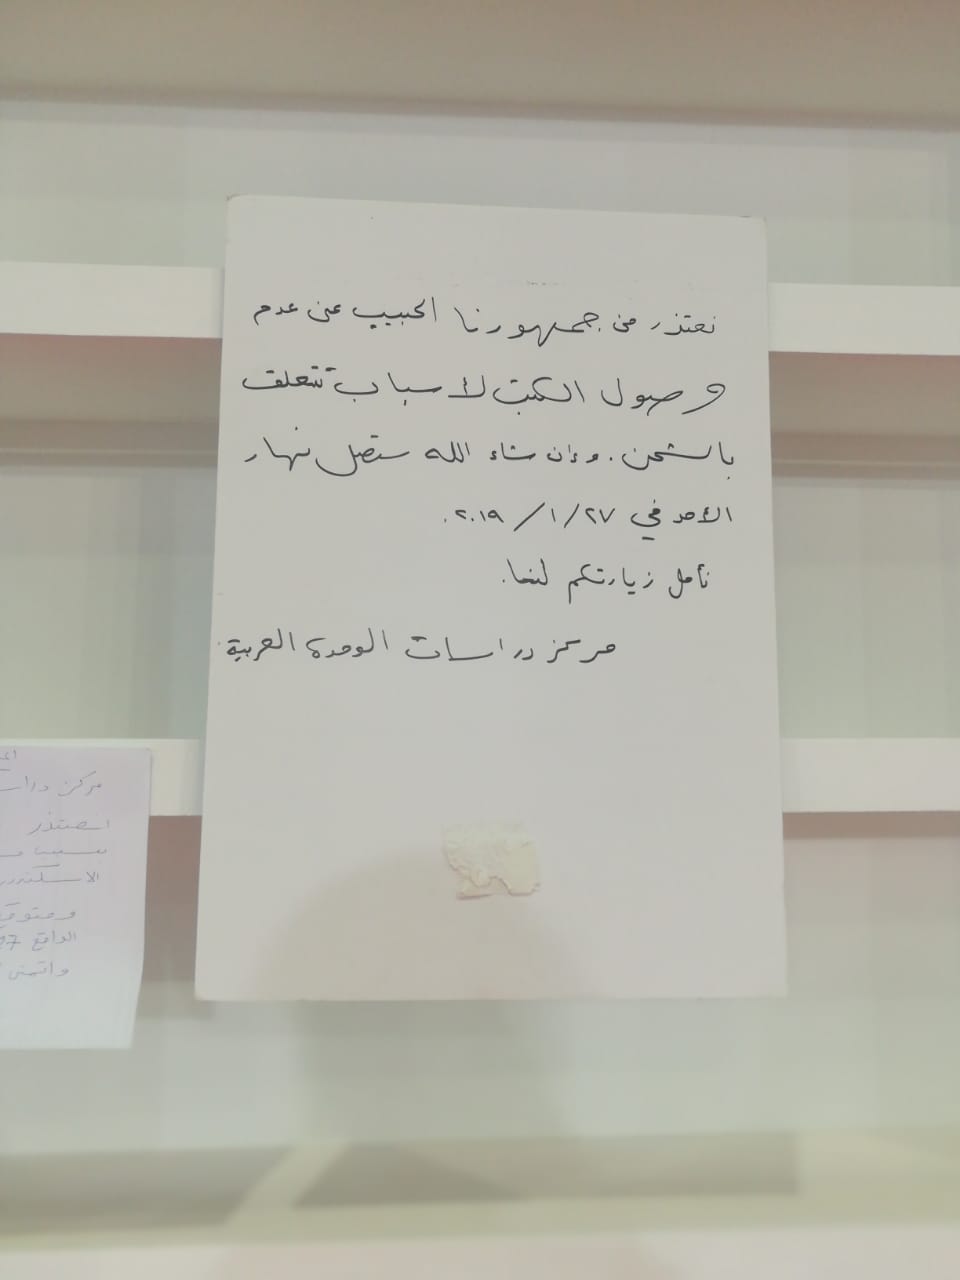 نعتذر من جمهورنا الحبيب عن عدم
وصول الكتب لأسباب تتعلق
بالشحن. وإن شاء الله ستصل نهار
الأحد في ٢٧/ ١/ ٢٠١٩.
نأمل زيارتكم لنا.
مركز دراسات الوحدة العربية
مركز دراسات
الاسكندر
ومتوقع